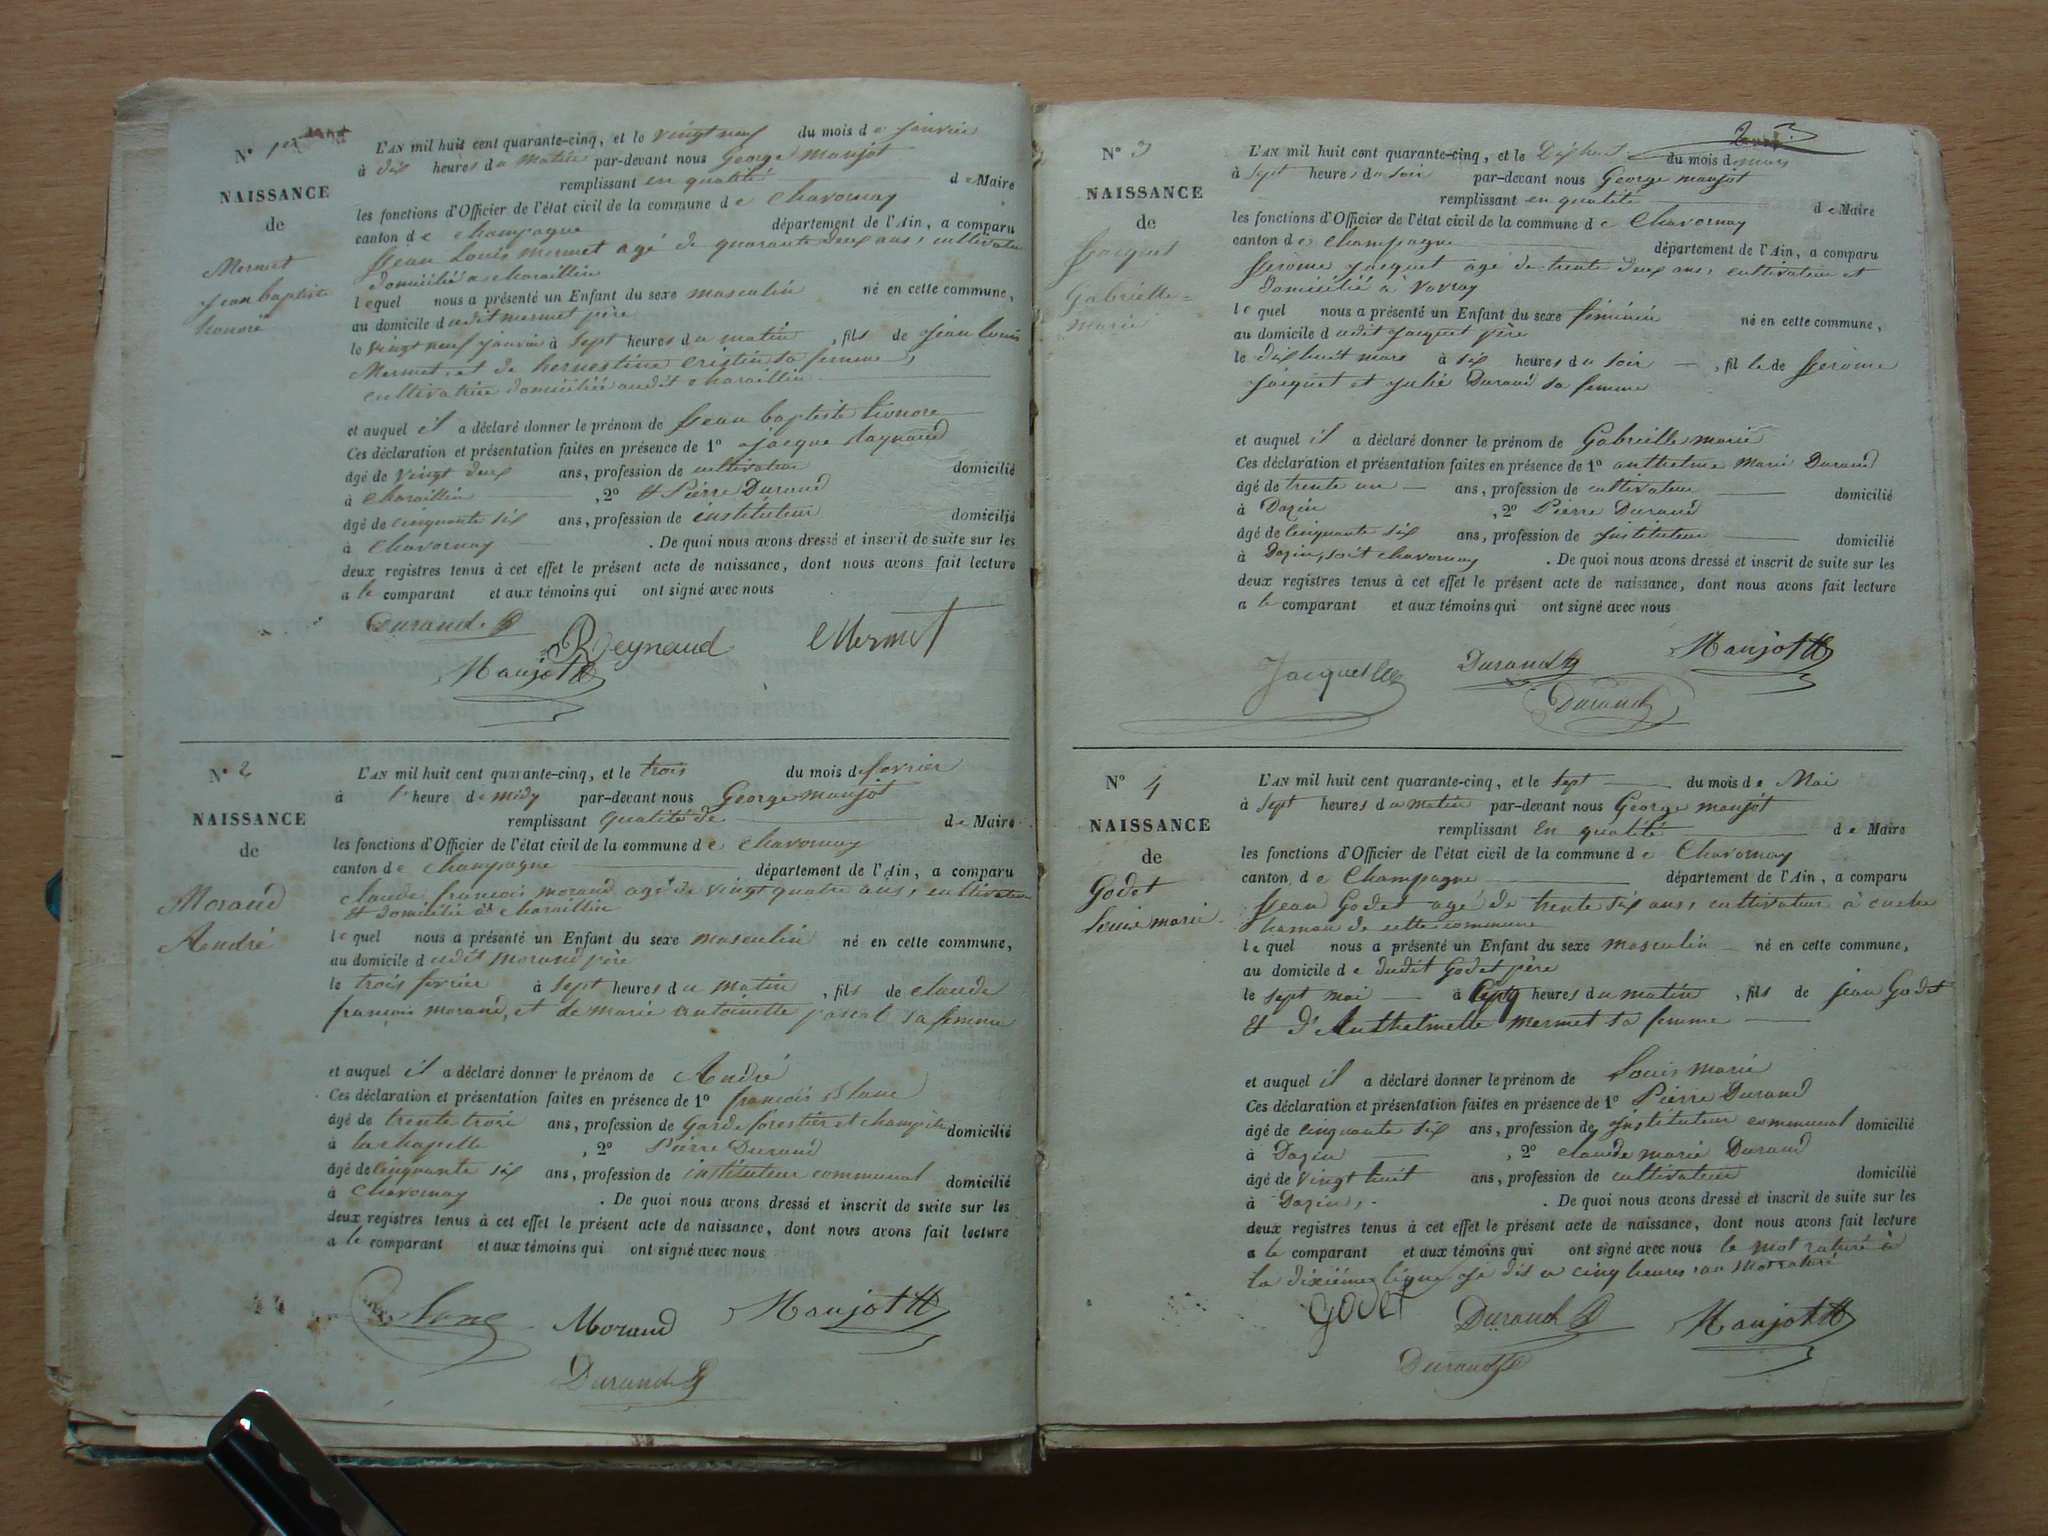 N° 1er
NAISSANCE
de
Mermet
jean baptiste
honoré
L'AN mil huit cent quarante-cinq, et le vingt neuf du mois de janvier
à dix heures du matin par-devant nous George maujot
remplissant en qualité de Maire
les fonctions d'Officier de l'état civil de la commune de Chavornay
canton de Champagne département de l'Ain, a comparu
jean Louis mermet agé de quarante deux ans, cultivateur
domicilié a charaillin
lequel nous a présenté un Enfant du sexe masculin né en cette commune,
au domicile dudit mermet père
le vingt neuf janvier à sept heures du matin, fils de jean louis
Mermet, et de hernestine Cristin sa femme,
cultivatrice domiciliée audit charaillin
et auquel il a déclaré donner le prénom de jean baptiste honore
Ces déclaration et présentation faites en présence de 1° jacque Raynaud
âgé de vingt deux ans, profession de cultivateur domicilié
à charaillin, 2° et Pierre Durand
âgé de cinquante six ans, profession de instituteur domicilié
à chavornay. De quoi nous avons dressé et inscrit de suite sur les
deux registres tenus à cet effet le présent acte de naissance, dont nous avons fait lecture
a le comparant et aux témoins qui ont signé avec nous
Durand
Reynaud
Mermet
Maujot
N° 2
NAISSANCE
de
Morand
André
L'AN mil huit cent quarante-cinq, et le trois du mois de fevrier
à l'heure de midy par-devant nous George maujot
remplissant qualité de de Maire
les fonctions d'Officier de l'état civil de la commune de chavornay
canton de champagne département de l'Ain, a comparu
claude françois morand agé de vingt quatre ans, cultivateur
et domicilié à charaillin
lequel nous a présenté un Enfant du sexe masculin né en cette commune,
au domicile dudit morand père
le trois fevrier à sept heures du matin, fils de claude
françois morand, et de marie antoinette pascal sa femme
et auquel il a déclaré donner le prénom de André
Ces déclaration et présentation faites en présence de 1° françois
âgé de trente trois ans, profession de garde forestier et champêtre domicilié
à lachapelle, 2° Pierre Durand
âgé de cinquante six ans, profession de instituteur communal domicilié
à chavornay. De quoi nous avons dressé et inscrit de suite sur les
deux registres tenus à cet effet le présent acte de naissance, dont nous avons fait lecture
a le comparant et aux témoins qui ont signé avec nous
Morand
Maujot
Durand
N° 3
NAISSANCE
de
jacquet
Gabrielle=
marie
L'AN mil huit cent quarante-cinq, et le Dixhuit du mois de mars
à sept heures du soir par-devant nous George maujot
remplissant en qualité de Maire
les fonctions d'Officier de l'état civil de la commune de Chavornay
canton de Champagne département de l'Ain, a comparu
jerome jacquet agé de trente deux ans, cultivateur et
domicilié à vovray
lequel nous a présenté un Enfant du sexe féminin né en cette commune,
au domicile dudit jacquet père
le dixhuit mars à six heures du soir, fille de jerome
jacquet et julie Durand sa femme
et auquel il a déclaré donner le prénom de Gabrielle marie
Ces déclaration et présentation faites en présence de 1° anthelme marie Durand
âgé de trente un ans, profession de cultivateur domicilié
à Dazin, 2° Pierre Durand
âgé de cinquante six ans, profession de instituteur domicilié
à Dazin, soit chavornay. De quoi nous avons dressé et inscrit de suite sur les
deux registres tenus à cet effet le présent acte de naissance, dont nous avons fait lecture
a le comparant et aux témoins qui ont signé avec nous
Jacquet
Durand
Maujot
Durand
N° 4
NAISSANCE
de
Godet
Louis marie
L'AN mil huit cent quarante-cinq, et le sept du mois de Mai
à sept heures du matin par-devant nous George maujot
remplissant En qualité de Maire
les fonctions d'Officier de l'état civil de la commune de Chavornay
canton de Champagne département de l'Ain, a comparu
jean Godet agé de trente six ans, cultivateur à
hamau de cette commune
lequel nous a présenté un Enfant du sexe masculin né en cette commune,
au domicile de dudit Godet père
le sept mai à heures du matin, fils de jean Godet
et d'Anthelmette mermet sa femme
et auquel il a déclaré donner le prénom de Louis marie
Ces déclaration et présentation faites en présence de 1° Pierre Durand
âgé de cinquante six ans, profession de instituteur communal domicilié
à Dazin, 2° claude marie Durand
âgé de vingt huit ans, profession de cultivateur domicilié
à Dazin,. De quoi nous avons dressé et inscrit de suite sur les
deux registres tenus à cet effet le présent acte de naissance, dont nous avons fait lecture
a le comparant et aux témoins qui ont signé avec nous le mot raturé à
la dixième ligne je dis a cinq heures un mot raturé
Godet
Durand
Maujot
Durand